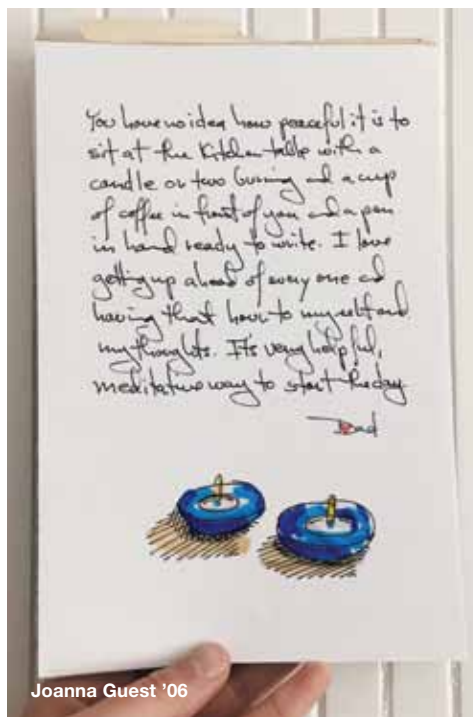 You have no idea how peaceful it is to
sit at the kitchen table with a
candle or two burning and a cup
of coffee in front of you and a pen
in hand ready to write. I love
getting up ahead of every one and
having that hour to myself and
my thoughts. It's very helpful,
meditative way to start the day
Dad
Joanna Guest '06